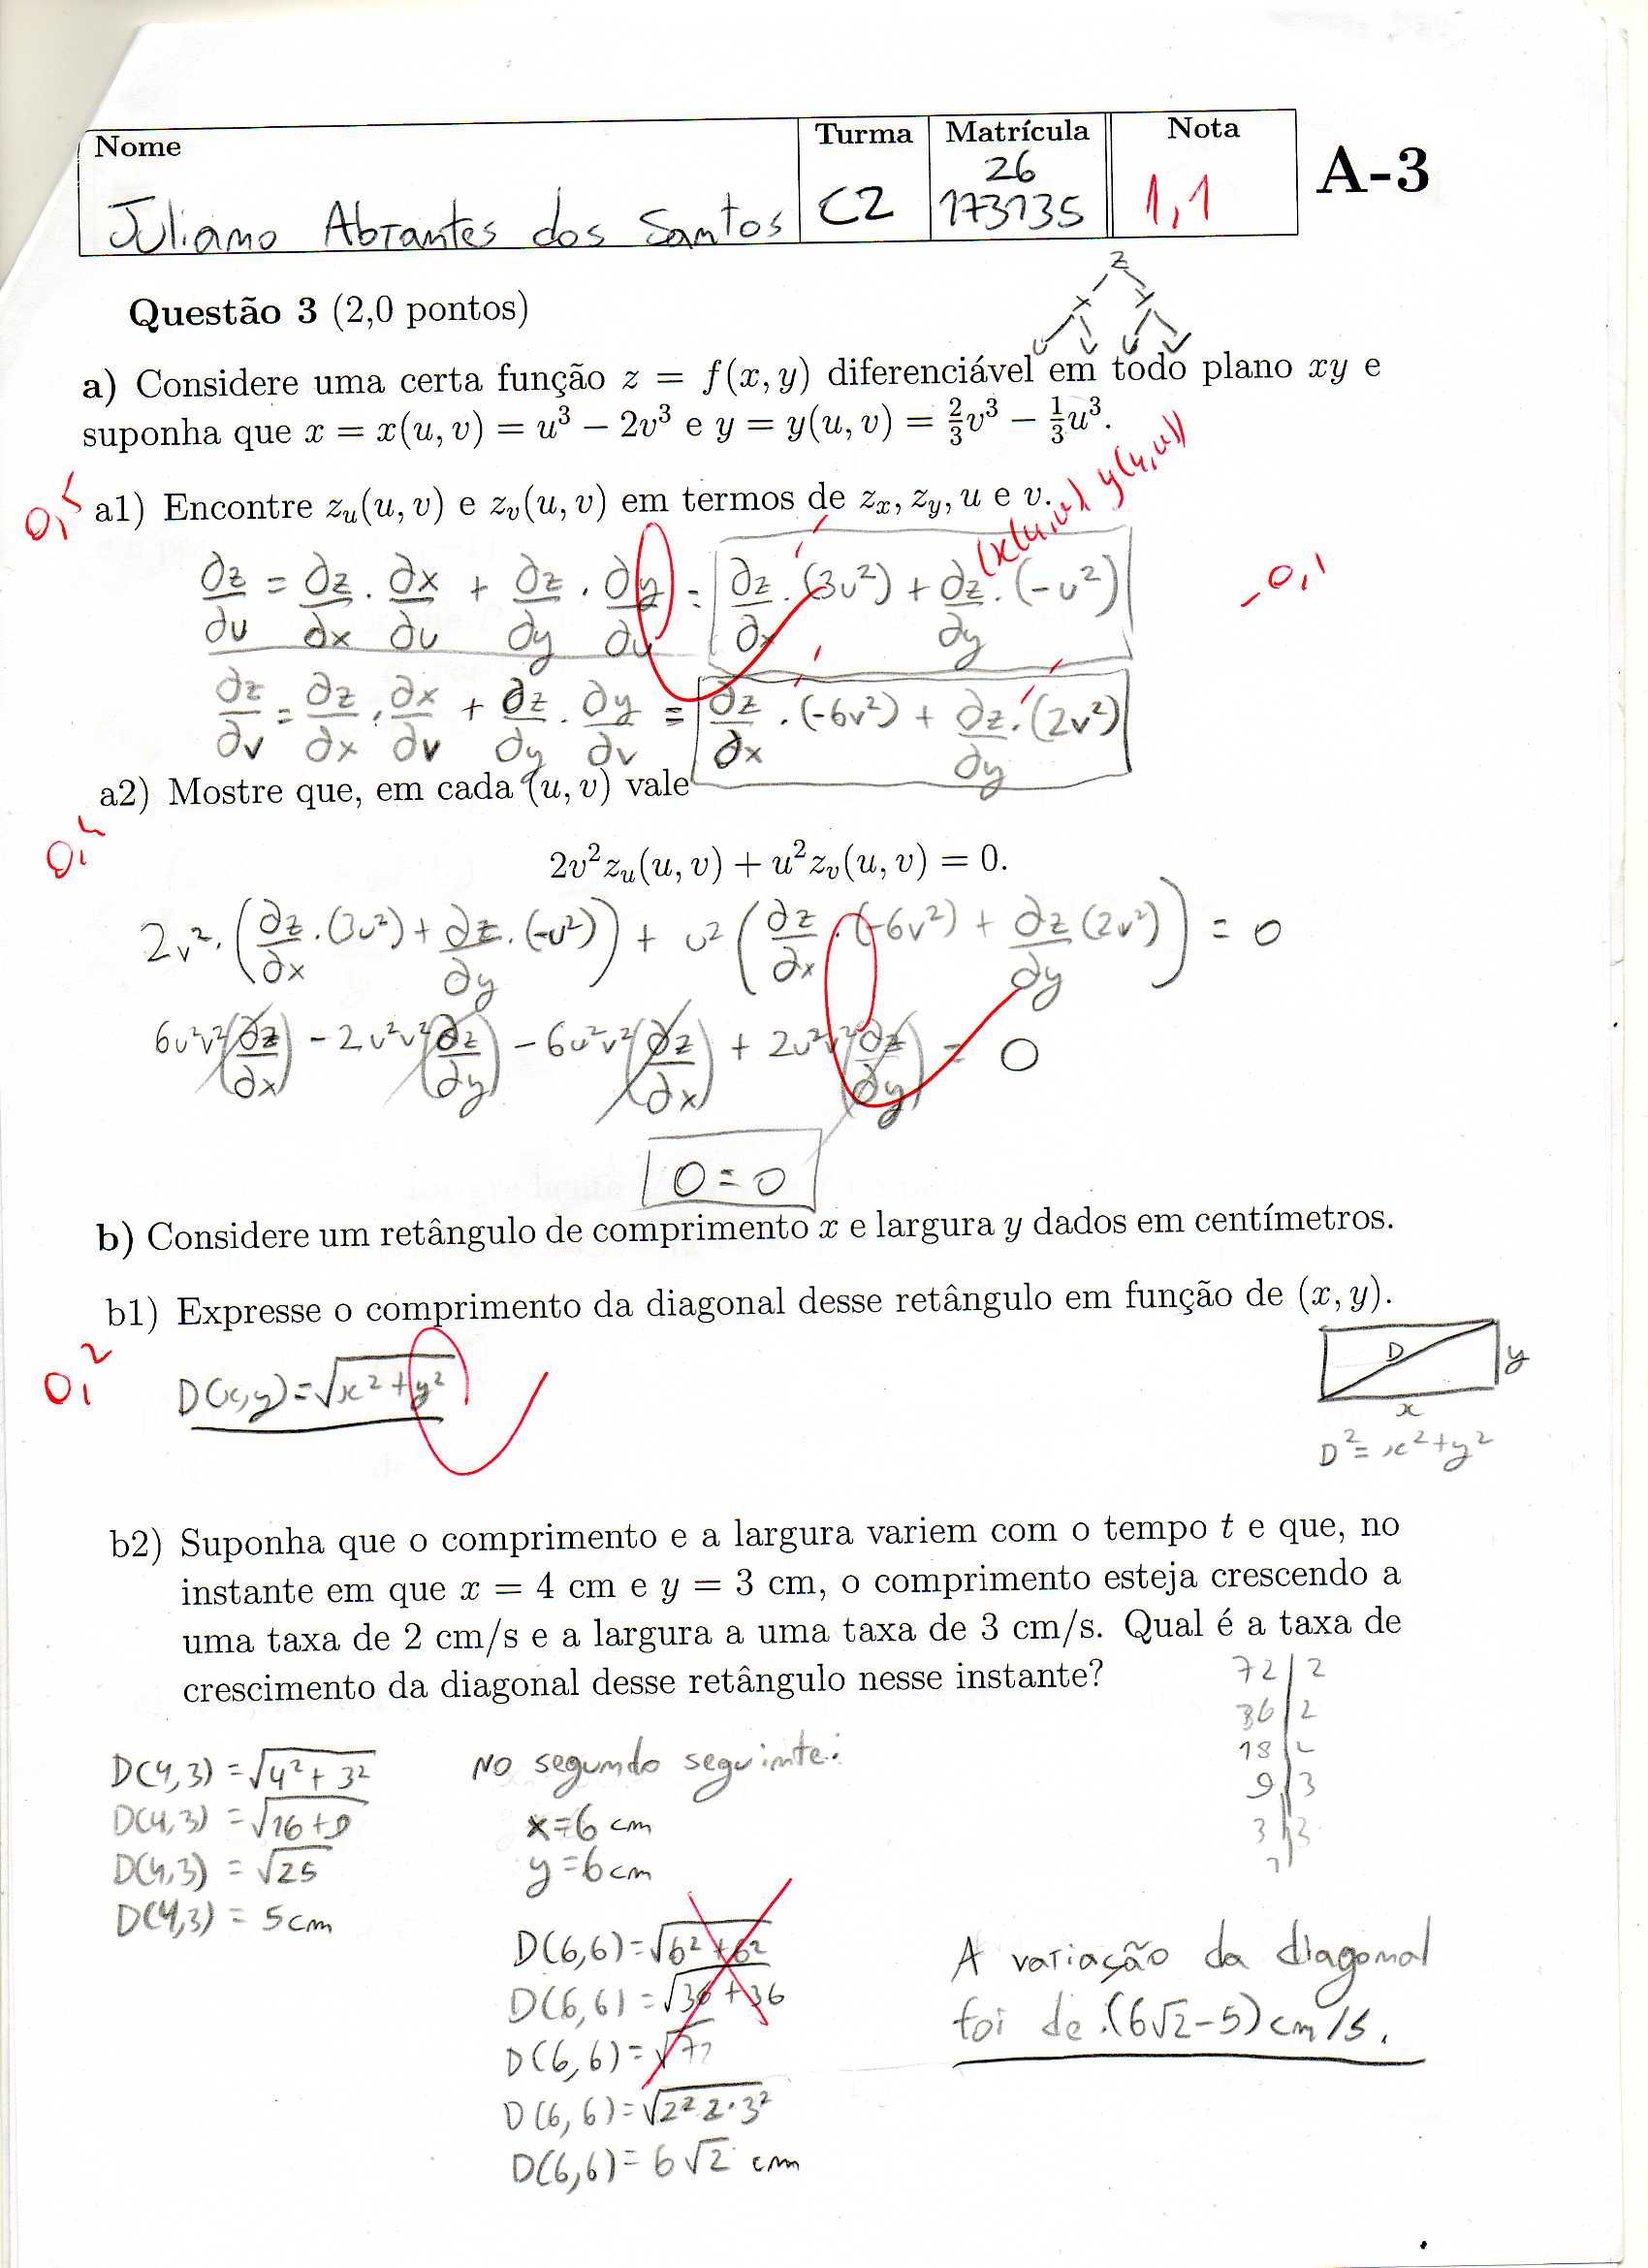 Nome Turma Matrícula Nota
Juliano Abrantes dos Santos C2 26 173135 1,1 A-3
z
x y
u v u v
Questão 3 (2,0 pontos)
a) Considere uma certa função z = f(x, y) diferenciável em todo plano xy e
suponha que x = x(u, v) = u³ − 2v³ e y = y(u, v) = 2/3 v³ − 1/3 u³.
0,5 a1) Encontre z_u(u, v) e z_v(u, v) em termos de z_x, z_y, u e v.
(x(u,v) y(u,v))
∂z/∂u = ∂z/∂x . ∂x/∂u + ∂z/∂y . ∂y/∂u = ∂z/∂x . (3u²) + ∂z/∂y . (-u²) -0,1
∂z/∂v = ∂z/∂x . ∂x/∂v + ∂z/∂y . ∂y/∂v = ∂z/∂x . (-6v²) + ∂z/∂y . (2v²)
a2) Mostre que, em cada (u, v) vale
0,4
2v²z_u(u, v) + u²z_v(u, v) = 0.
2v² . (∂z/∂x . (3u²) + ∂z/∂y . (-u²)) + u² (∂z/∂x . (-6v²) + ∂z/∂y (2v²)) = 0
6u²v² (∂z/∂x) - 2u²v² (∂z/∂y) - 6u²v² (∂z/∂x) + 2u²v² (∂z/∂y) = 0
0 = 0
b) Considere um retângulo de comprimento x e largura y dados em centímetros.
b1) Expresse o comprimento da diagonal desse retângulo em função de (x, y).
0,2 D(x,y) = √(x² + y²)
D y
x
D² = x² + y²
b2) Suponha que o comprimento e a largura variem com o tempo t e que, no
instante em que x = 4 cm e y = 3 cm, o comprimento esteja crescendo a
uma taxa de 2 cm/s e a largura a uma taxa de 3 cm/s. Qual é a taxa de
crescimento da diagonal desse retângulo nesse instante?
72 | 2
36 | 2
18 | 2
9 | 3
3 | 3
1
D(4,3) = √(4² + 3²)
D(4,3) = √(16 + 9)
D(4,3) = √25
D(4,3) = 5 cm
No segundo seguinte:
x = 6 cm
y = 6 cm
D(6,6) = √(6² + 6²)
D(6,6) = √(36 + 36)
D(6,6) = √72
D(6,6) = √(2² 2 . 3²)
D(6,6) = 6√2 cm
A variação da diagonal
foi de (6√2 - 5) cm/s.